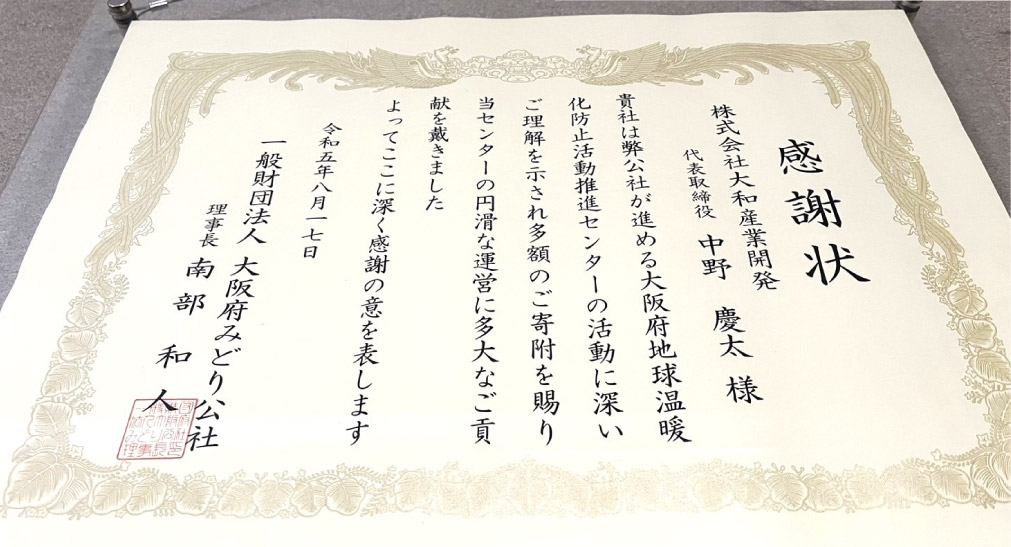 感謝状
株式会社大和産業開発
代表取締役 中野 慶太 様
貴社は弊公社が進める大阪府地球温暖
化防止活動推進センターの活動に深い
ご理解を示され多額のご寄附を賜り
当センターの円滑な運営に多大なご貢
献を戴きました
よってここに深く感謝の意を表します
令和五年八月一七日
一般財団法人 大阪府みどり公社
理事長 南部 和人